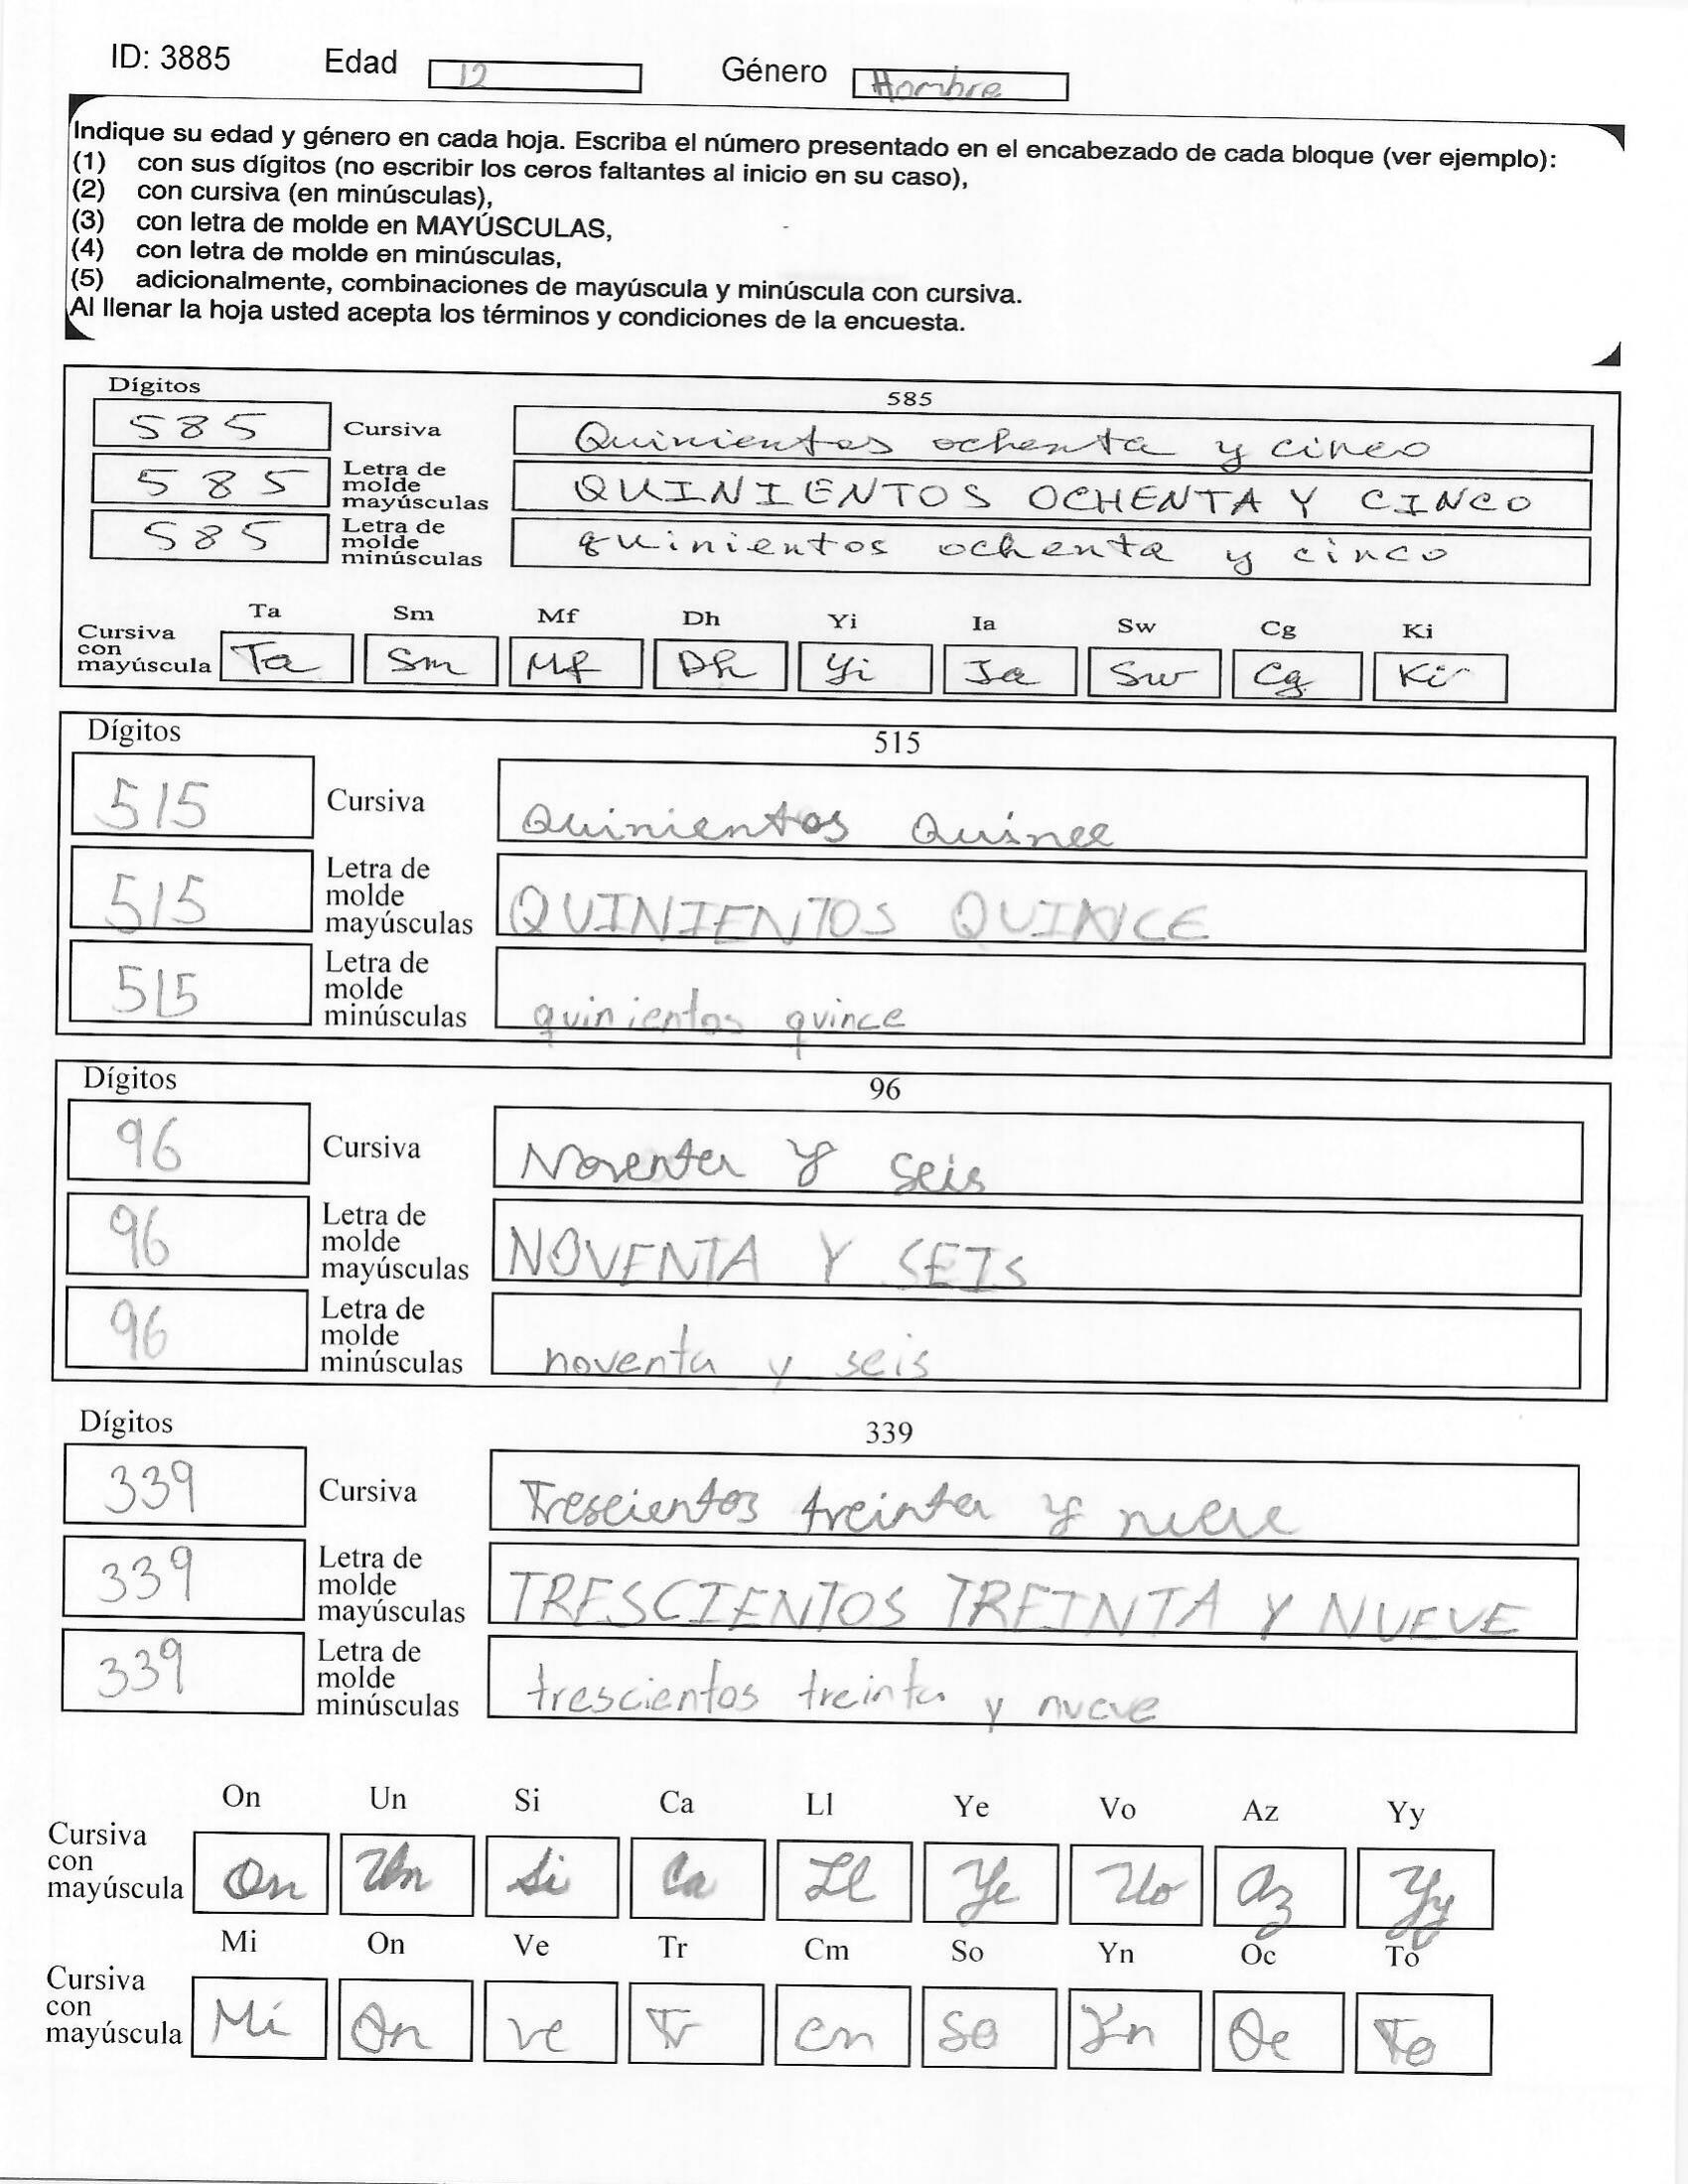 ID: 3885 Edad 12 Género Hombre
Indique su edad y género en cada hoja. Escriba el número presentado en el encabezado de cada bloque (ver ejemplo):
(1) con sus dígitos (no escribir los ceros faltantes al inicio en su caso),
(2) con cursiva (en minúsculas),
(3) con letra de molde en MAYÚSCULAS,
(4) con letra de molde en minúsculas,
(5) adicionalmente, combinaciones de mayúscula y minúscula con cursiva.
Al llenar la hoja usted acepta los términos y condiciones de la encuesta.
Dígitos 585
585 Cursiva Quinientos ochenta y cinco
585 Letra de molde mayúsculas QUINIENTOS OCHENTA Y CINCO
585 Letra de molde minúsculas quinientos ochenta y cinco
Ta Sm Mf Dh Yi Ia Sw Cg Ki
Cursiva con mayúscula Ta Sm Mf Dh Yi Ia Sw Cg Ki
Dígitos 515
515 Cursiva Quinientos Quince
515 Letra de molde mayúsculas QUINIENTOS QUINCE
515 Letra de molde minúsculas quinientos quince
Dígitos 96
96 Cursiva Noventa y seis
96 Letra de molde mayúsculas NOVENTA Y SEIS
96 Letra de molde minúsculas noventa y seis
Dígitos 339
339 Cursiva Trescientos treinta y nueve
339 Letra de molde mayúsculas TRESCIENTOS TREINTA Y NUEVE
339 Letra de molde minúsculas trescientos treinta y nueve
On Un Si Ca Ll Ye Vo Az Yy
Cursiva con mayúscula On Un Si Ca Ll Ye Vo Az Yy
Mi On Ve Tr Cm So Yn Oc To
Cursiva con mayúscula Mi On Ve Tr Cm So Yn Oc To